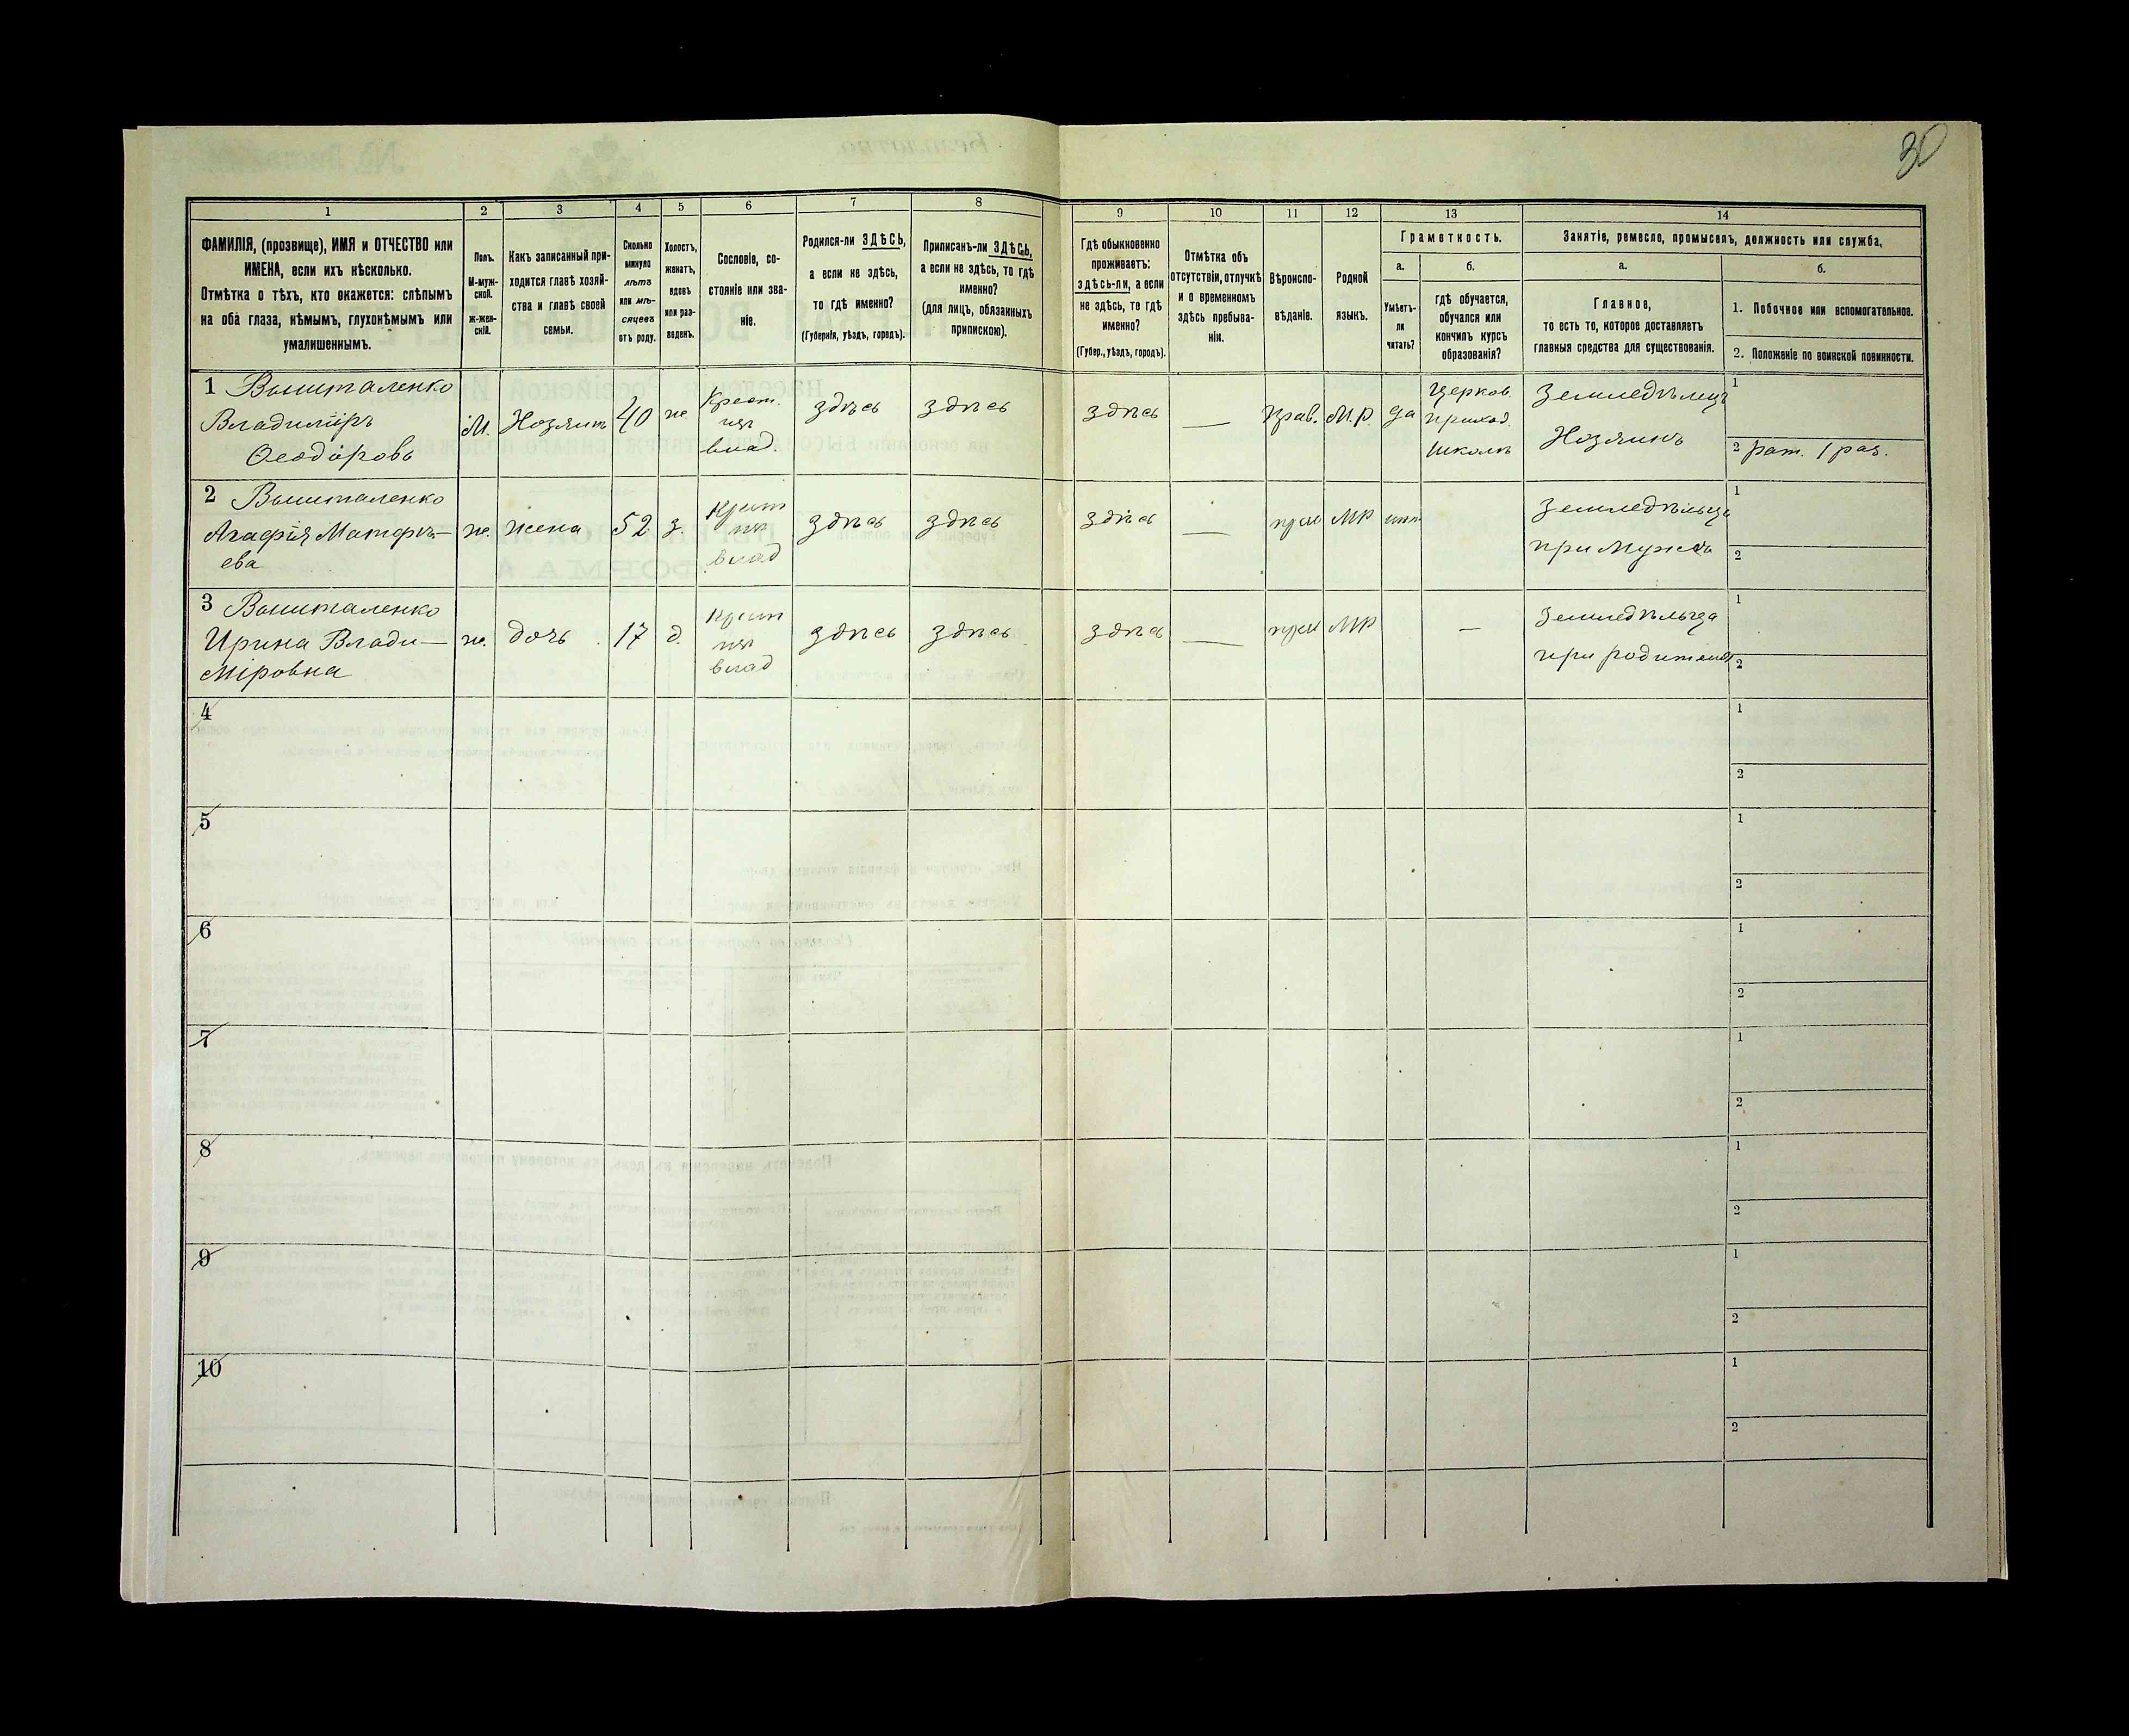 30
1 2 3 4 5 6 7 8 9 10 11 12 13 14
ФАМИЛІЯ, (прозвище), ИМЯ и ОТЧЕСТВО или
ИМЕНА, если ихъ нѣсколько.
Отмѣтка о тѣхъ, кто окажется: слѣпымъ
на оба глаза, нѣмымъ, глухонѣмымъ или
умалишеннымъ.
Полъ.
М-муж-
ской.
ж-жен-
скій.
Какъ записанный при-
ходится главѣ хозяй-
ства и главѣ своей
семьи.
Сколько
минуло
лѣтъ
или мѣ-
сяцевъ
отъ роду.
Холостъ,
женатъ,
вдовъ
или раз-
веденъ.
Сословіе, со-
стояніе или зва-
ніе.
Родился-ли ЗДѢСЬ,
а если не здѣсь,
то гдѣ именно?
(Губернія, уѣздъ, городъ).
Приписанъ-ли ЗДѢСЬ,
а если не здѣсь, то гдѣ
именно?
(для лицъ, обязанныхъ
припискою).
Гдѣ обыкновенно
проживаетъ:
здѣсь-ли, а если
не здѣсь, то гдѣ
именно?
(Губер., уѣздъ, городъ).
Отмѣтка объ
отсутствіи, отлучкѣ
и о временномъ
здѣсь пребыва-
ніи.
Вѣроиспо-
вѣданіе.
Родной
языкъ.
Грамотность.
а.
Умѣетъ-
ли
читать?
б.
гдѣ обучается,
обучался или
кончилъ курсъ
образованія?
Занятіе, ремесло, промыселъ, должность или служба,
а.
Главное,
то есть то, которое доставляетъ
главныя средства для существованія.
б.
1. Побочное или вспомогательное.
2. Положеніе по воинской повинности.
1 Вышталенко
Владиміръ
Ѳеодоровъ
М.
Хозяинъ
40
ж.
Крест.
изъ
влад.
здѣсь
здѣсь
здѣсь
—
Прав.
М.р.
да
Церков.
приход.
школѣ
Земледѣлецъ
Хозяинъ
1
2 Рат. 1 раз.
2 Вышталенко
Агафія Матфѣ-
ева
ж.
жена
52
з.
Крест
изъ
влад
здѣсь
здѣсь
здѣсь
—
прав
МР
нѣтъ
Земледѣльца
при мужѣ
1
2
3 Вышталенко
Ирина Влади-
міровна
ж.
дочь
17
д.
Крест
изъ
влад
здѣсь
здѣсь
здѣсь
—
прав
МР
—
Земледѣльца
при родителяхъ
1
2
4
1
2
5
1
2
6
1
2
7
1
2
8
1
2
9
1
2
10
1
2